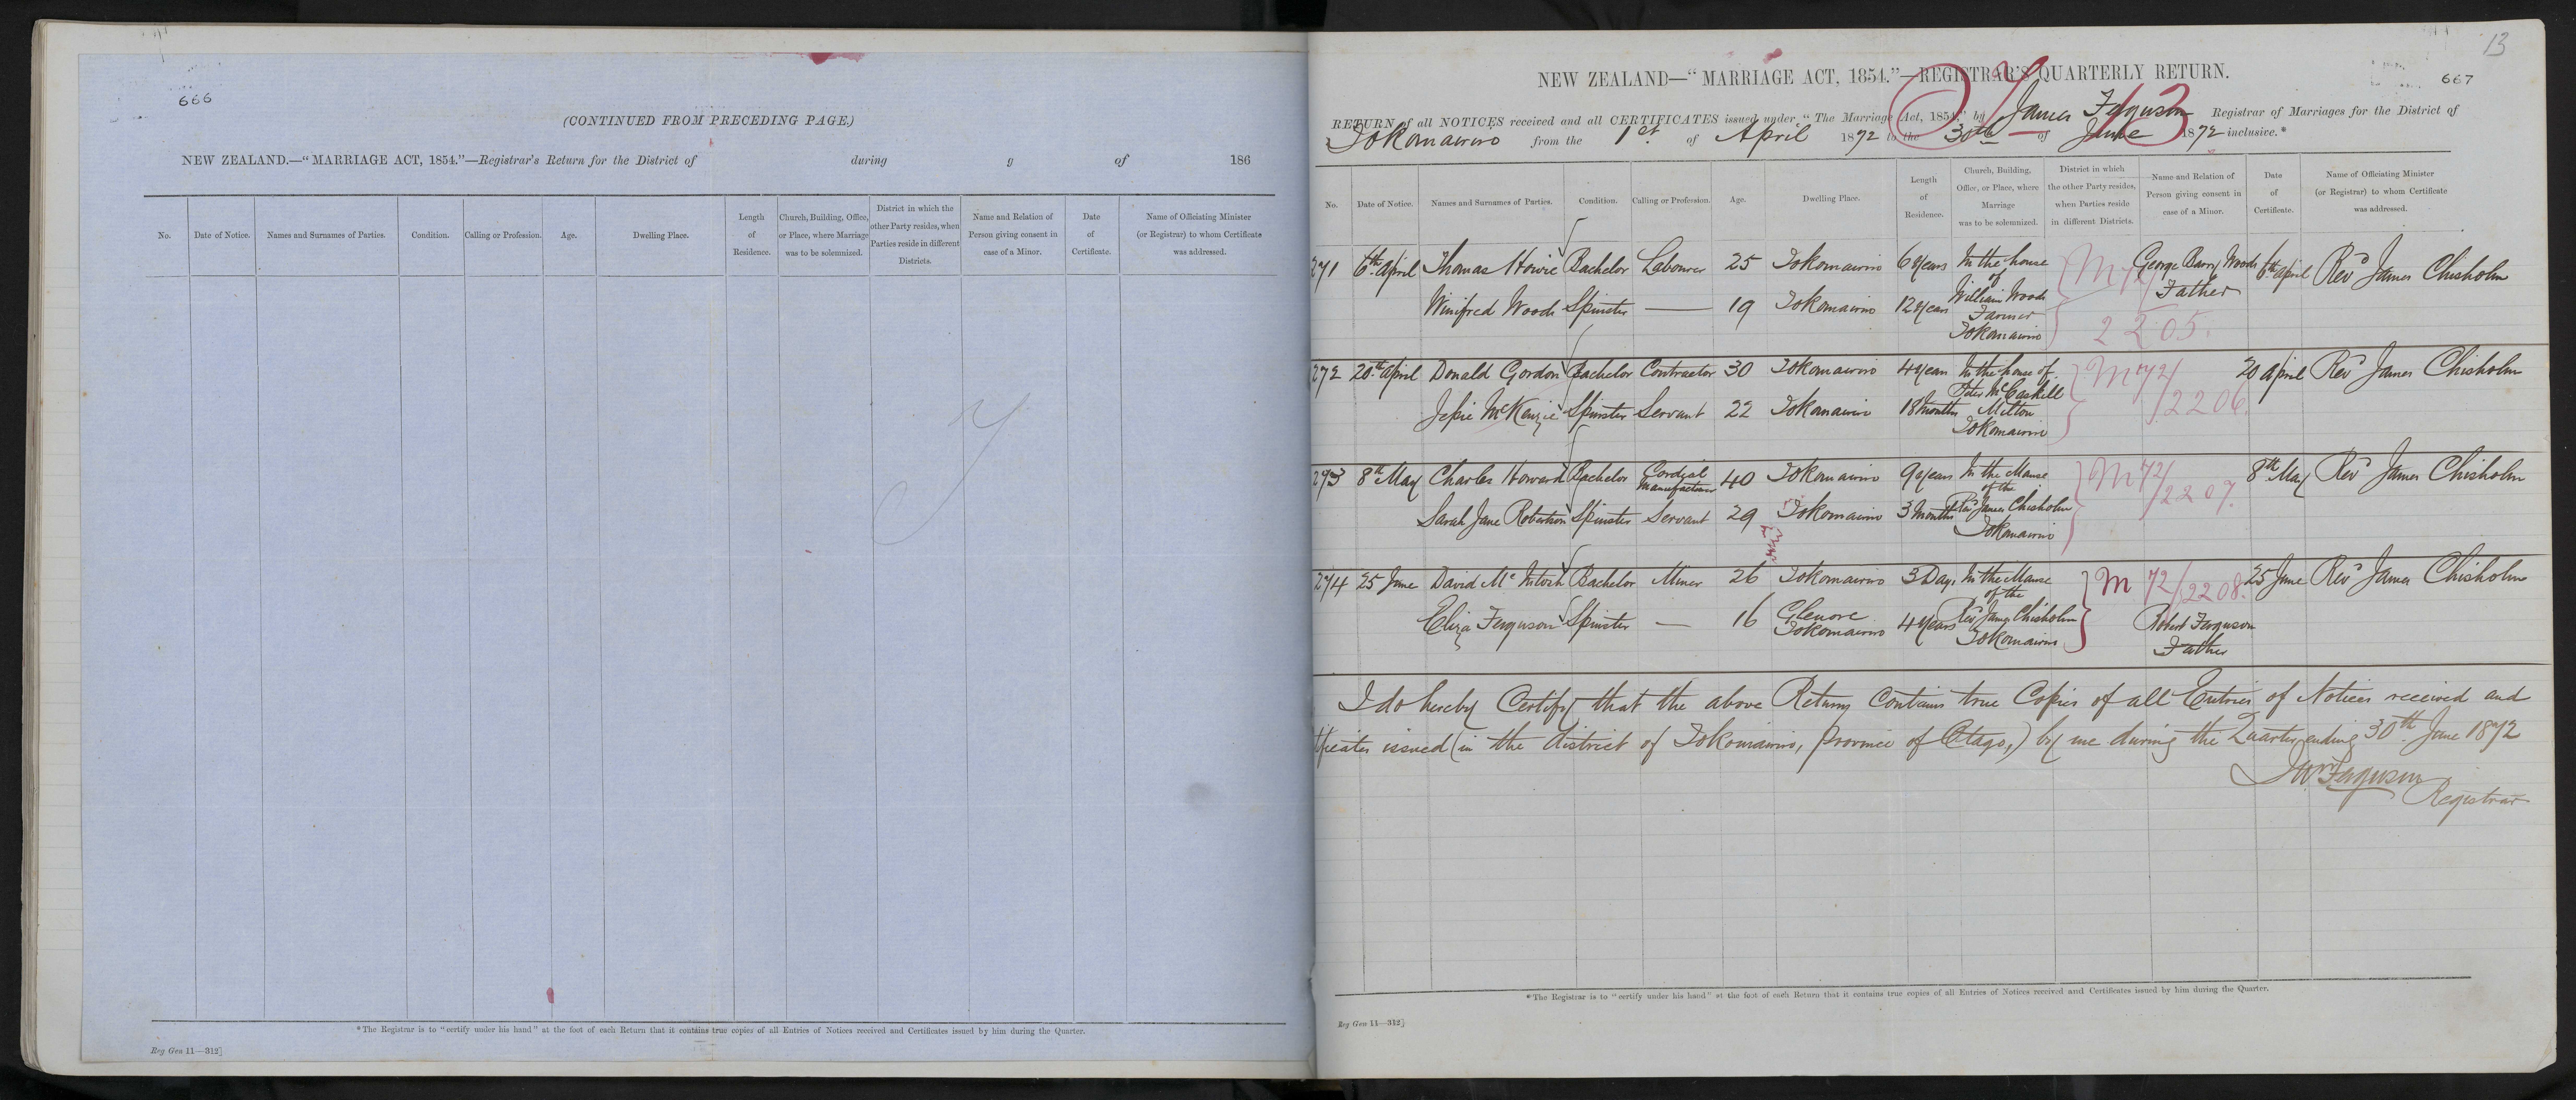 666
(CONTINUED FROM PRECEDING PAGE.)
NEW ZEALAND.—"MARRIAGE ACT, 1854."—Registrar's Return for the District of during g of 186
No. Date of Notice. Names and Surnames of Parties. Condition. Calling or Profession. Age. Dwelling Place. Length of Residence. Church, Building, Office, or Place, where Marriage was to be solemnized. District in which the other Party resides, when Parties reside in different Districts. Name and Relation of Person giving consent in case of a Minor. Date of Certificate. Name of Officiating Minister (or Registrar) to whom Certificate was addressed.
*The Registrar is to "certify under his hand" at the foot of each Return that it contains true copies of all Entries of Notices received and Certificates issued by him during the Quarter.
Reg Gen 11—312]
13
667
NEW ZEALAND—"MARRIAGE ACT, 1854."—REGISTRAR'S QUARTERLY RETURN.
RETURN of all NOTICES received and all CERTIFICATES issued under "The Marriage Act, 1854," by James Ferguson Registrar of Marriages for the District of
Tokomairiro from the 1st of April 1872 to the 30th of June 1872 inclusive.*
No. Date of Notice. Names and Surnames of Parties. Condition. Calling or Profession. Age. Dwelling Place. Length of Residence. Church, Building, Office, or Place, where Marriage was to be solemnized. District in which the other Party resides, when Parties reside in different Districts. Name and Relation of Person giving consent in case of a Minor. Date of Certificate. Name of Officiating Minister (or Registrar) to whom Certificate was addressed.
271 6th April Thomas Howie Bachelor Labourer 25 Tokomairiro 6 years In the house M 72/ George Barry Woods 6th April Revd James Chisholm
of Father
Winifred Woods Spinster — 19 Tokomairiro 12 years William Woods
Farmer
Tokomairiro 2205.
272 20th April Donald Gordon Bachelor Contractor 30 Tokomairiro 4 years In the house of M 72/ 20 April Revd James Chisholm
Peter McCaskill /2206.
Jessie McKenzie Spinster Servant 22 Tokomairiro 18 Months Milton
Tokomairiro
273 8th May Charles Howard Bachelor Cordial Manufacturer 40 Tokomairiro 9 years In the Manse M 72/ 8th May Revd James Chisholm
of the /2207.
Sarah Jane Robertson Spinster Servant 29 Tokomairiro 3 Months Revd James Chisholm
Tokomairiro
274 25 June David McIntosh Bachelor Miner 26 Tokomairiro 3 Days In the Manse M 72/2208. 25 June Revd James Chisholm
of the
Eliza Ferguson Spinster — 16 Glenore Tokomairiro 4 years Revd James Chisholm Robert Ferguson
Tokomairiro Father
I do hereby Certify that the above Return contains true Copies of all Entries of Notices received and
tificates issued (in the district of Tokomairiro, Province of Otago,) by me during the Quarter ending 30th June 1872
Jas Ferguson
Registrar
*The Registrar is to "certify under his hand" at the foot of each Return that it contains true copies of all Entries of Notices received and Certificates issued by him during the Quarter.
Reg Gen 11—312]